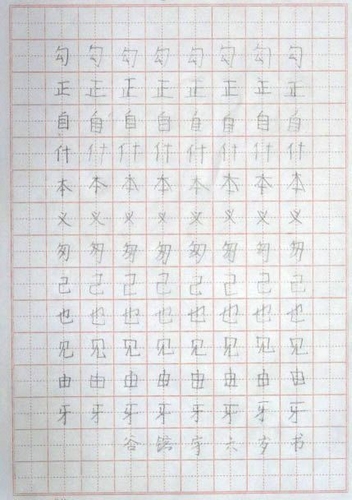 勾勾勾勾勾勾勾勾
正正正正正正正正
自自自自自自自自
什什什什什什什什
本本本本本本本本
义义义义义义义义
匆匆匆匆匆匆匆匆
己己己己己己己己
也也也也也也也也
见见见见见见见见
由由由由由由由由
牙牙牙牙牙牙牙牙
字六岁书